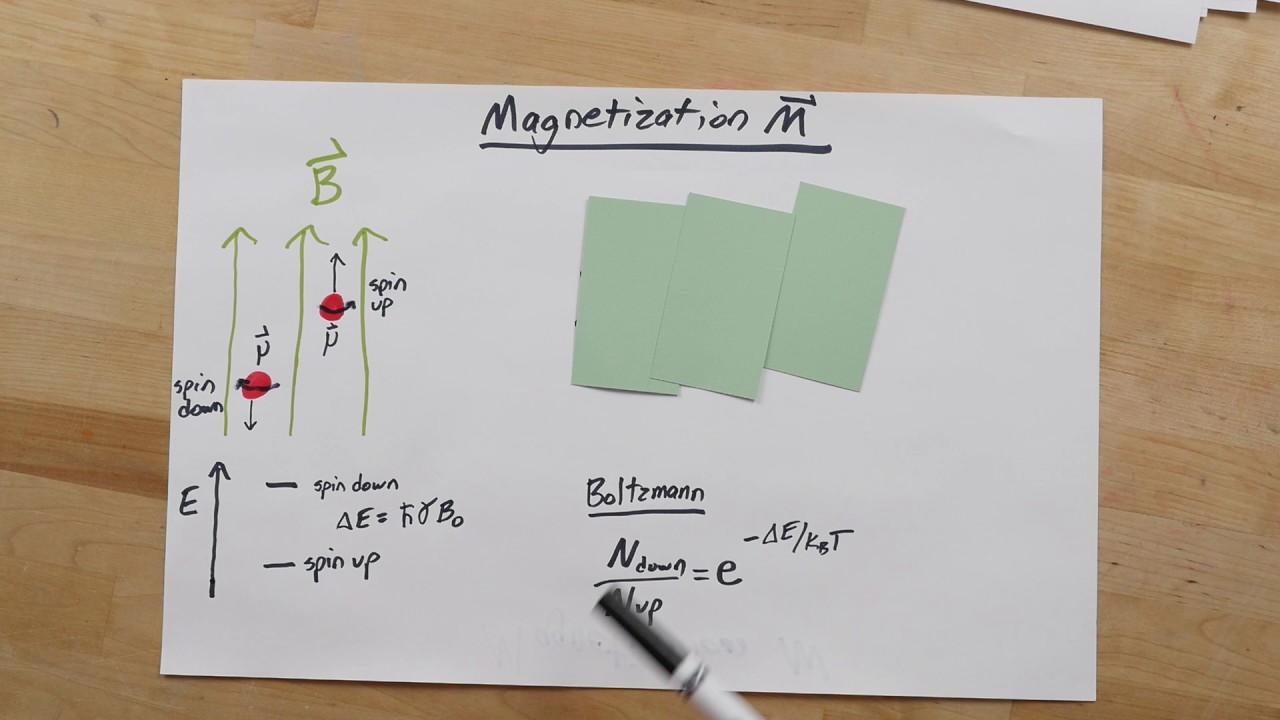 Magnetization M⃗
B⃗
spin
up
μ⃗
μ⃗
spin
down
E
spin down
ΔE = ħγB₀
spin up
Boltzmann
N_down / N_up = e^(-ΔE/k_B T)